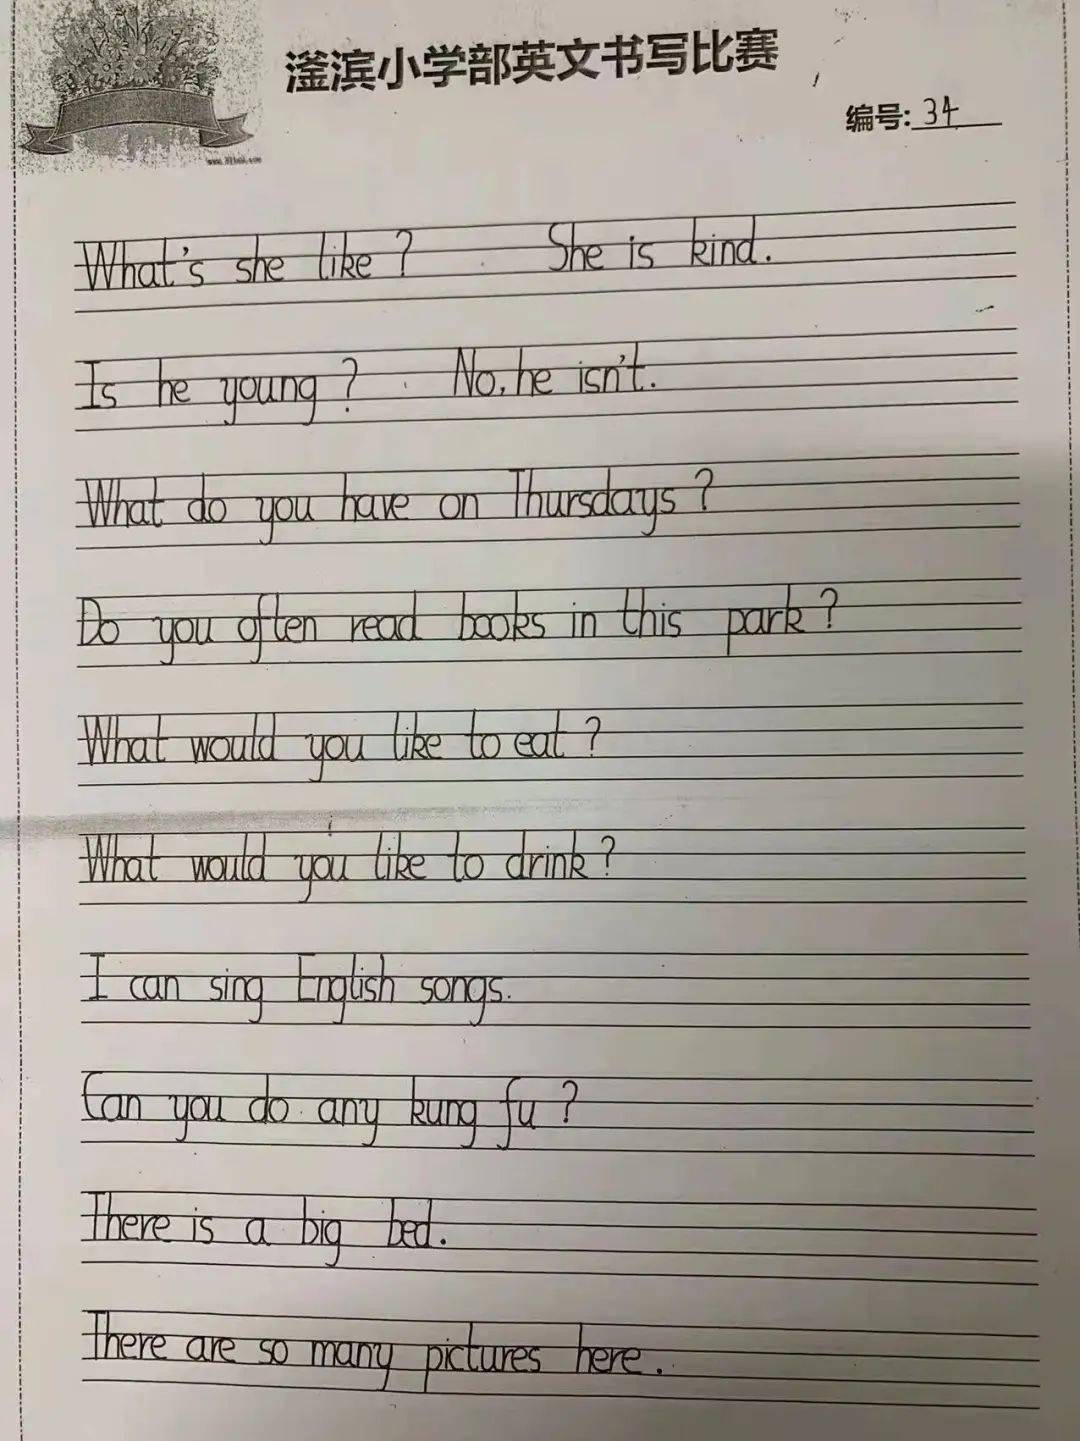 滏滨小学部英文书写比赛
编号: 34
What's she like? She is kind.
Is he young? No, he isn't.
What do you have on Thursdays?
Do you often read books in this park?
What would you like to eat?
What would you like to drink?
I can sing English songs.
Can you do any kung fu?
There is a big bed.
There are so many pictures here.